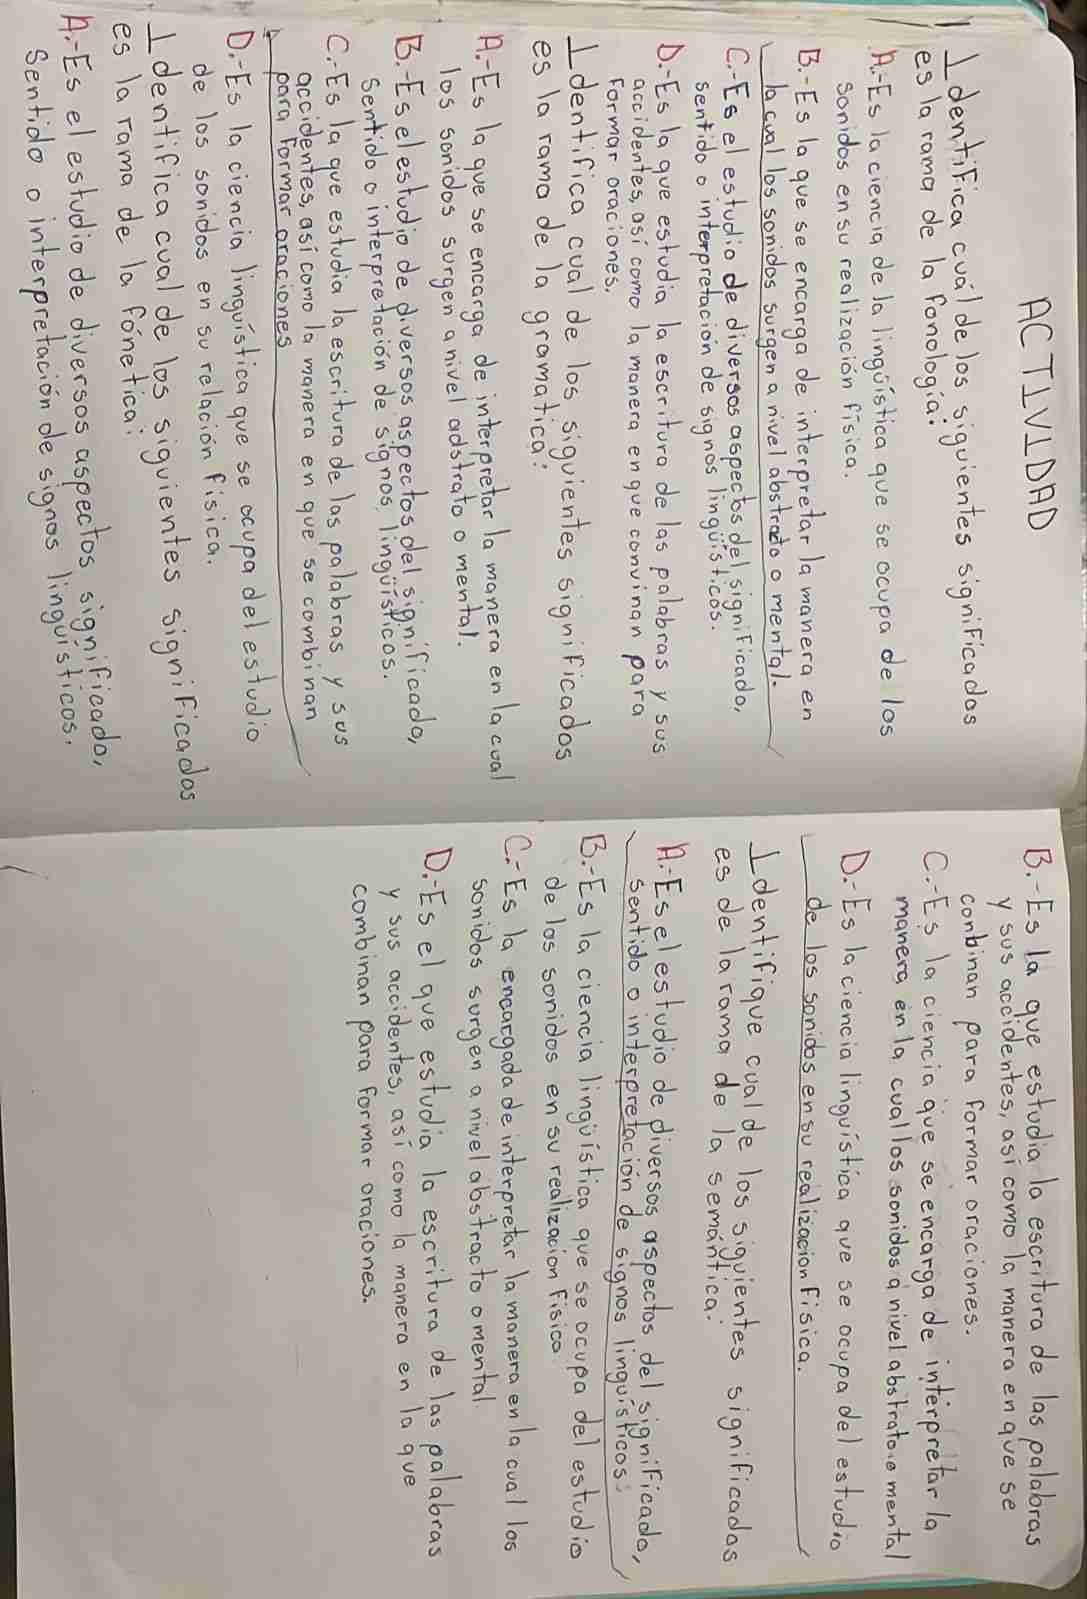 ACTIVIDAD
Identifica cuál de los siguientes significados
es la rama de la Fonología:
A.-Es la ciencia de la lingüística que se ocupa de los
sonidos en su realización Física.
B.-Es la que se encarga de interpretar la manera en
la cual los sonidos surgen a nivel abstracto o mental.
C.-Es el estudio de diversos aspectos del significado,
sentido o interpretación de signos lingüísticos.
D.-Es la que estudia la escritura de las palabras y sus
accidentes, así como la manera en que convinan para
Formar oraciones.
Identifica cual de los siguientes significados
es la rama de la gramatica:
A.-Es la que se encarga de interpretar la manera en la cual
los sonidos surgen a nivel adstrato o mental.
B.-Es el estudio de diversos aspectos del significado,
sentido o interpretación de signos lingüísticos.
C.-Es la que estudia la escritura de las palabras y sus
accidentes, así como la manera en que se combinan
para Formar oraciones
D.-Es la ciencia lingüística que se ocupa del estudio
de los sonidos en su relación Física.
Identifica cual de los siguientes significados
es la rama de la Fónetica:
A.-Es el estudio de diversos aspectos significado,
Sentido o interpretación de signos lingüísticos.
B.-Es la que estudia la escritura de las palabras
y sus accidentes, así como la manera en que se
conbinan para Formar oraciones.
C.-Es la ciencia que se encarga de interpretar la
manera en la cual los sonidos a nivel abstrato o mental
D.-Es la ciencia linguística que se ocupa del estudio
de los sonidos en su realizacion Fisica.
Identifique cual de los siguientes significados
es de la rama de la semántica:
A.-Es el estudio de diversos aspectos del significado,
sentido o interpretación de signos linguísticos.
B.-Es la ciencia lingüística que se ocupa del estudio
de los sonidos en su realizacion Fisica
C.-Es la encargada de interpretar la manera en la cual los
sonidos surgen a nivel abstracto o mental
D.-Es el que estudia la escritura de las palabras
y sus accidentes, así como la manera en la que
combinan para Formar oraciones.